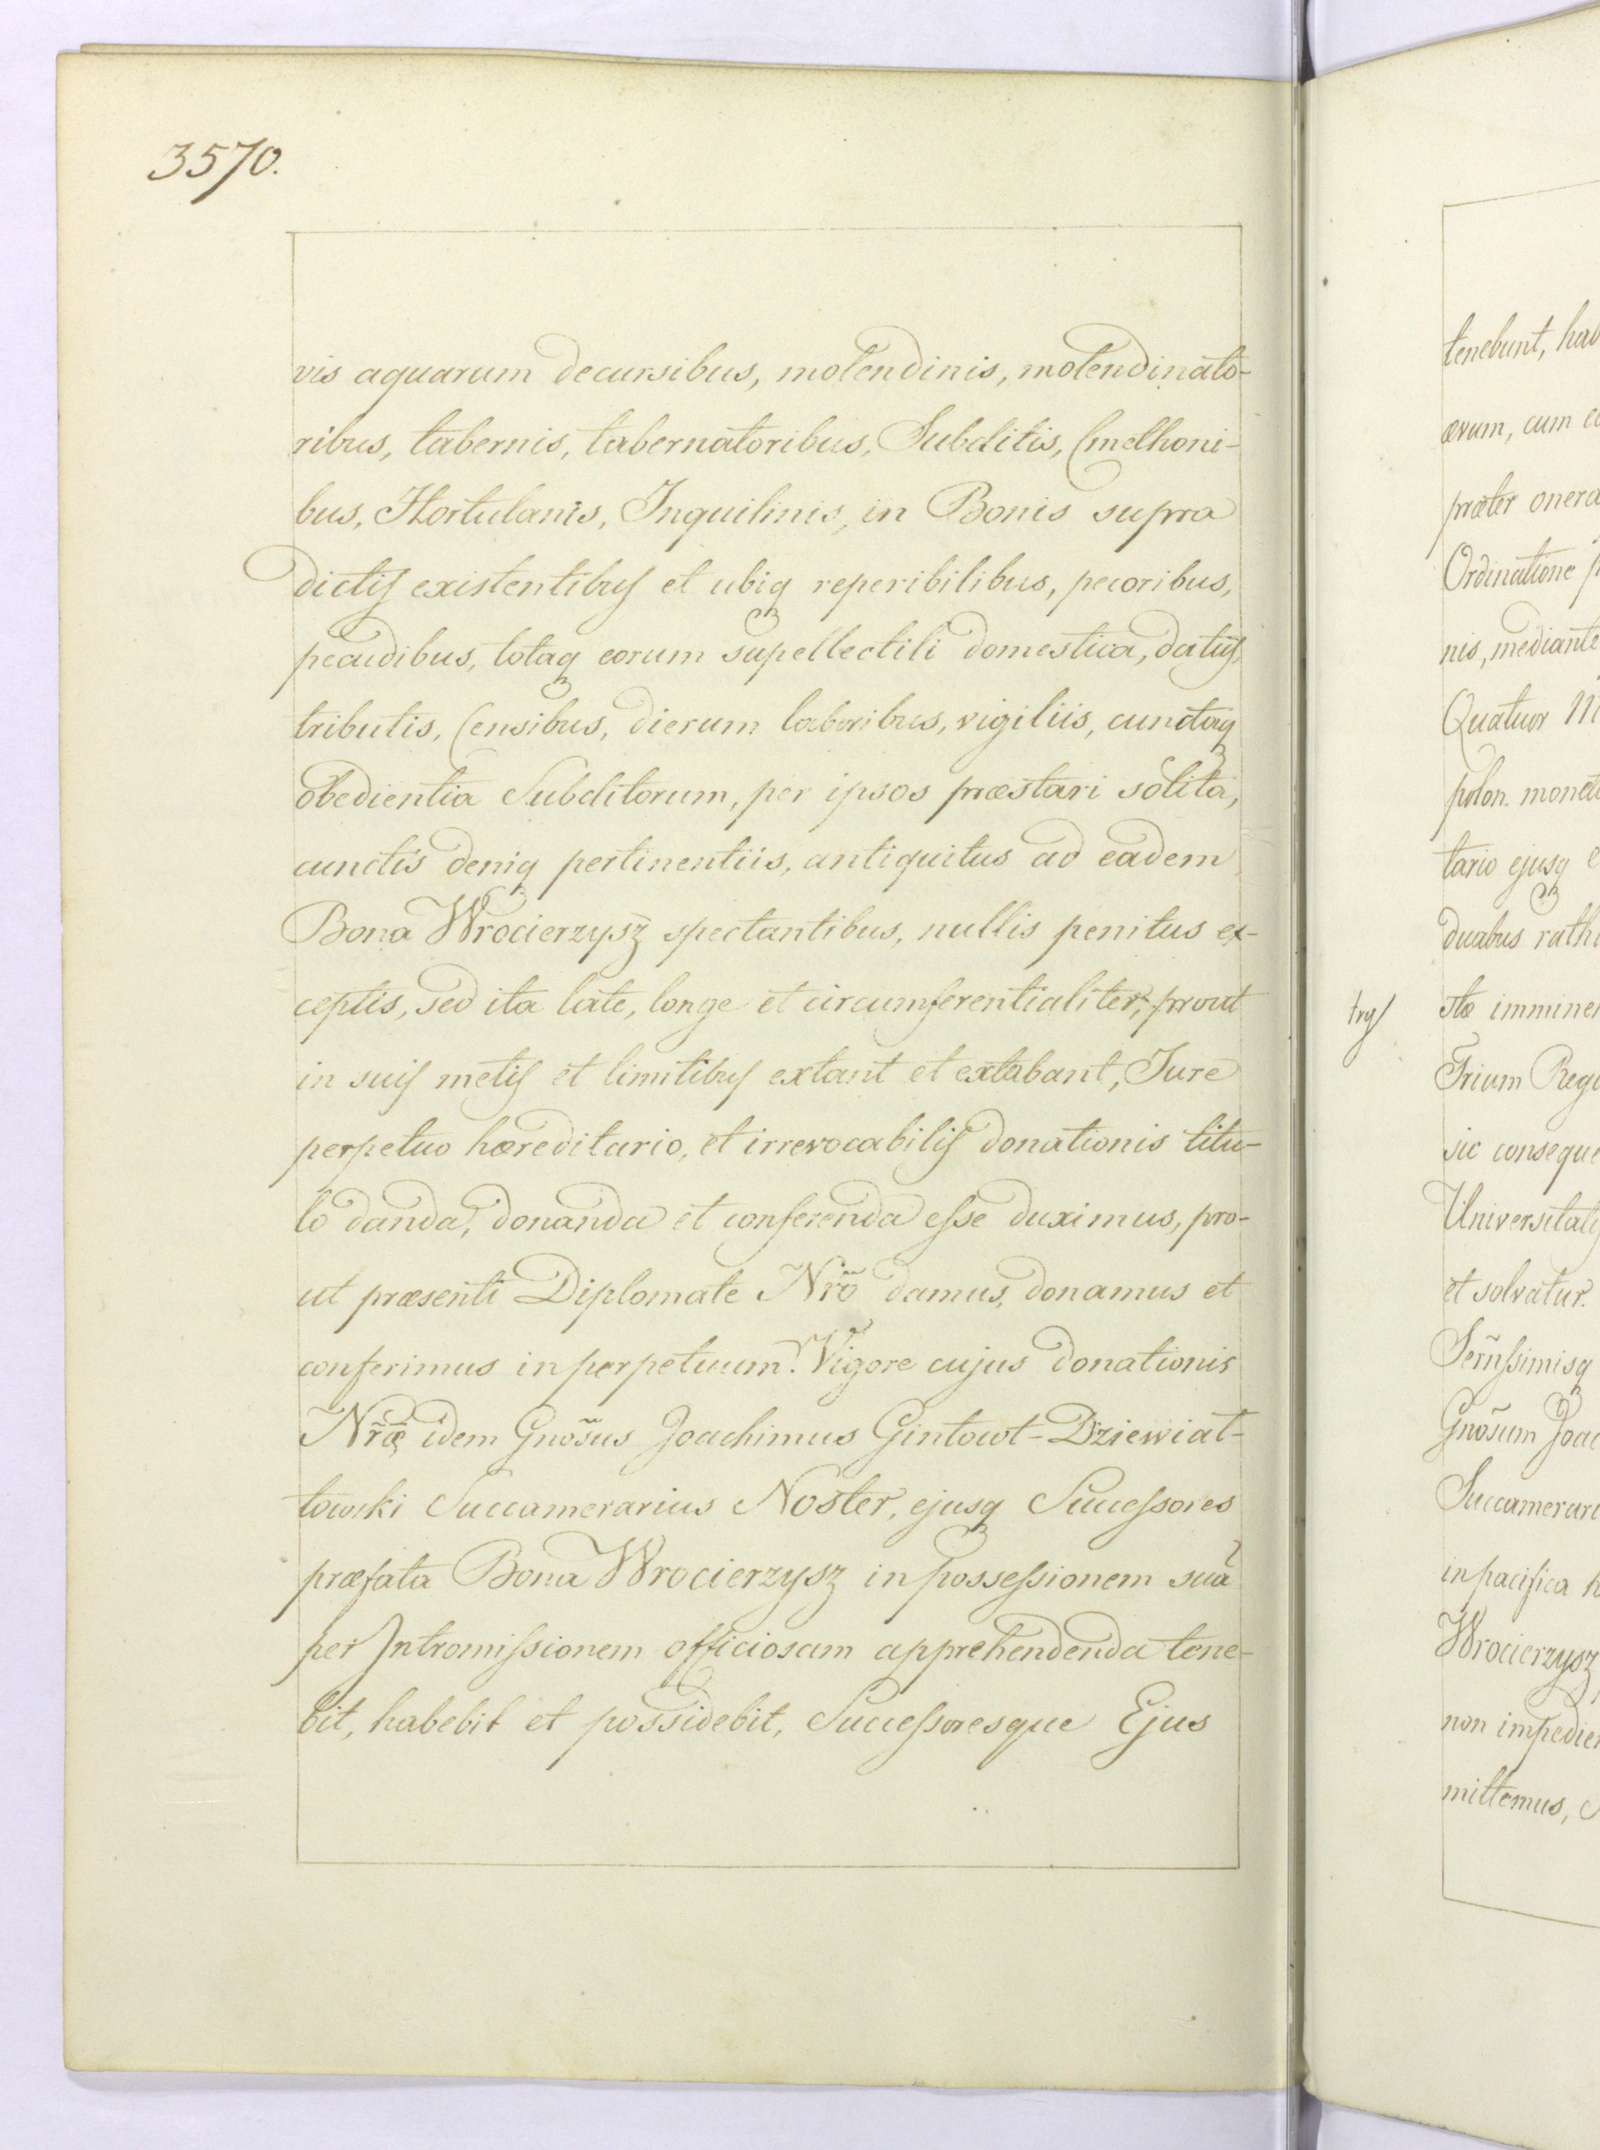 3570.
vis aquarum decursibus, molendinis, molendinato-
ribus, tabernis, tabernatoribus, Subditis, Cmethoni-
bus, Hortulanis, Inquilinis, in Bonis supra
dictis existentibus et ubiq reperibilibus, pecoribus,
pecudibus, totaq eorum supellectili domestica, datis,
tributis, Censibus, dierum laboribus, vigiliis, cunctaq
obedientia Subditorum, per ipsos præstari solita,
cunctis deniq pertinentiis, antiquitus ad eadem
Bona Wrocierzysz spectantibus, nullis penitus ex-
ceptis, sed ita late, longe et circumferentialiter, prout
in suis metis et limitibus extant et extabant, Jure
perpetuo hæreditario, et irrevocabilis donationis titu-
lo danda, donanda et conferenda esse duximus, pro-
ut præsenti Diplomate Nr̃o damus, donamus et
conferimus in perpetuum. Vigore cujus donationis
Nr̃æ idem Gnõsus Joachimus Gintowt-Dziewiał-
towski Succamerarius Noster, ejusq Successores
præfata Bona Wrocierzysz in possessionem suã
per Intromissionem officiosam apprehendenda tene-
bit, habebit et possidebit, Successoresque Ejus
tenebunt, hab
ævum, cum
præter onera
Ordinatione
nis, mediante
Quatuor
polon. monet
tario ejusq
duabus rath
try
stæ imminen
Trium Reg
sic conseque
Universitat
et solvatur.
Serñssimisq
Gnõsum Joac
Succamerar
in pacifica
Wrocierzysz
non impedie
mittemus,